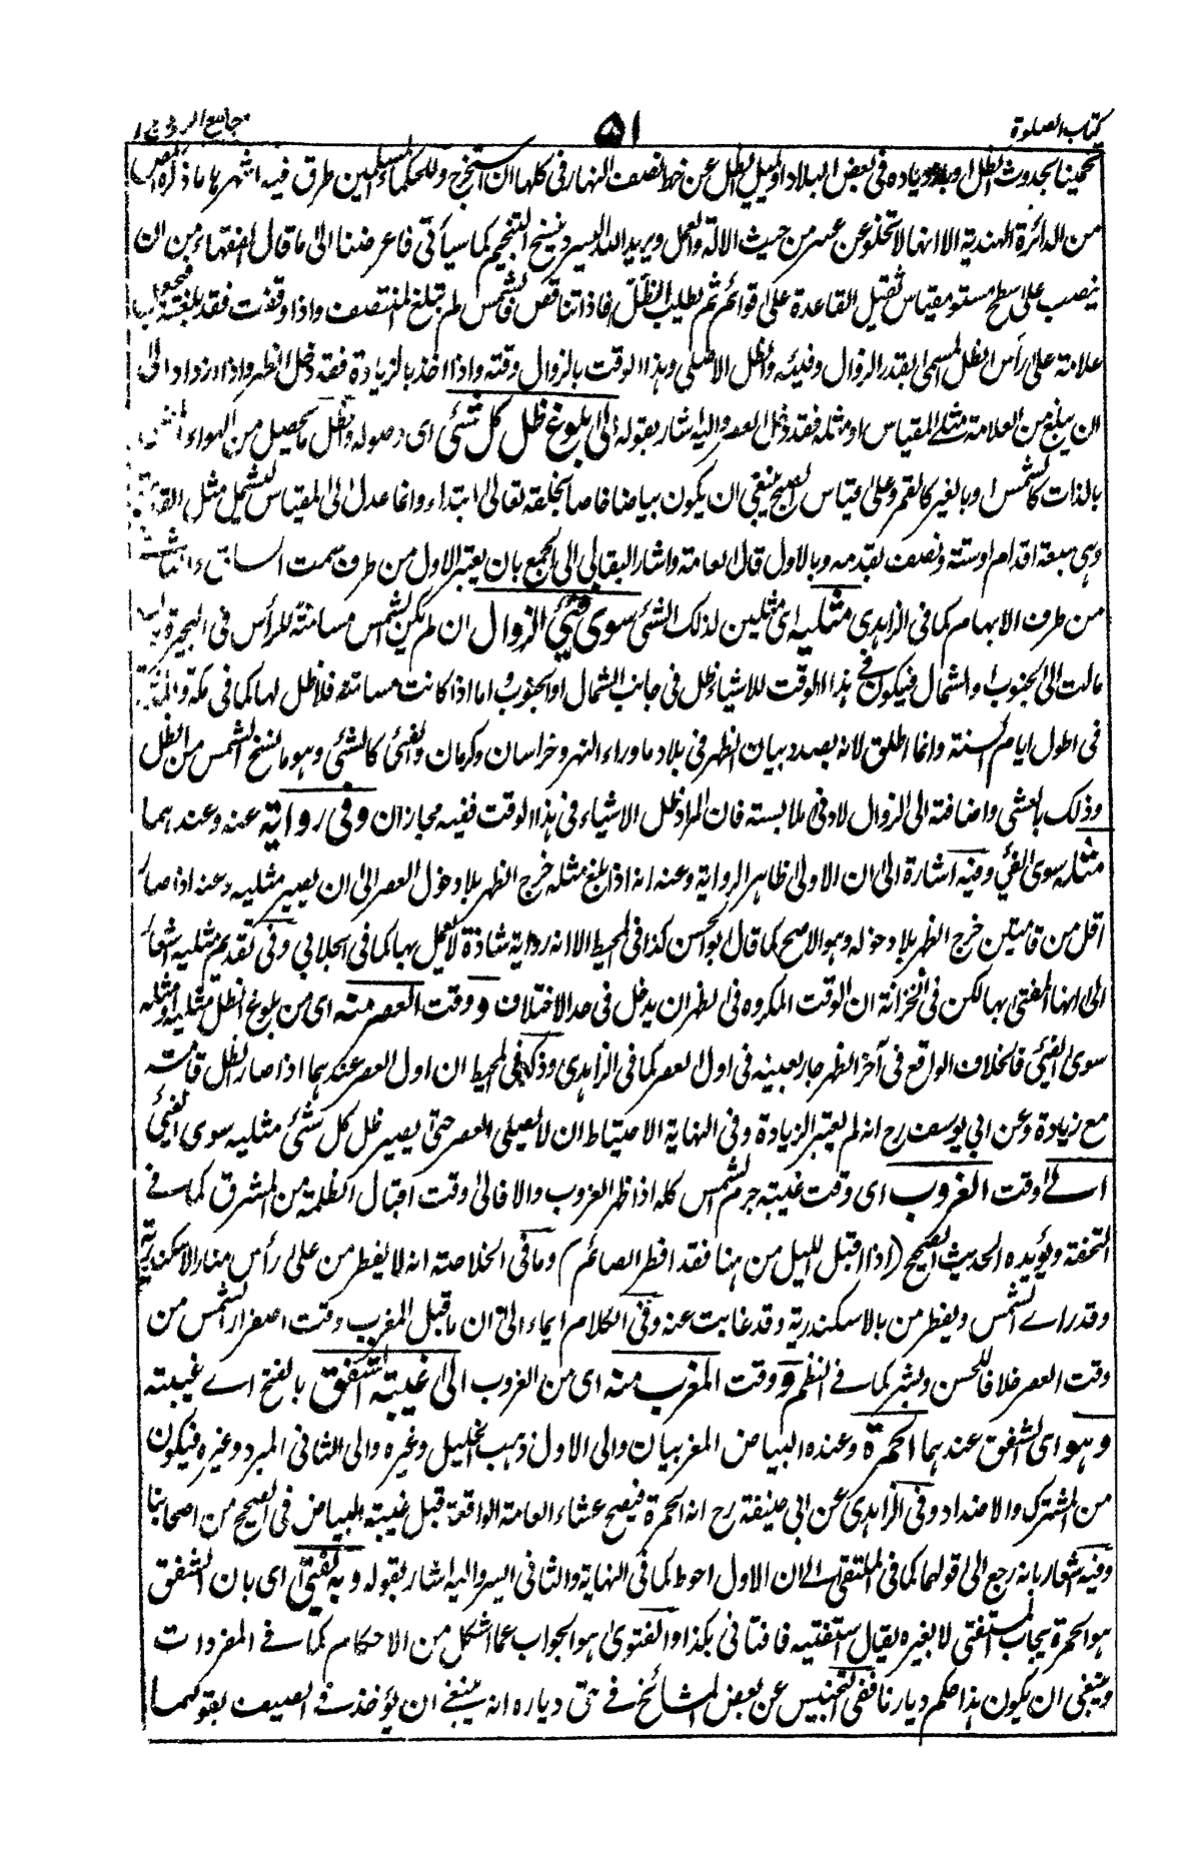 كتاب الصلوة
٥١
جامع الرموز ج١
تخمينا بحدوث الظل او بدو زيادة فى بعض البلاد او لميل الظل عن خط نصف النهار فى كلها ان استخرج وللحكماء المسلمين طرق فيه اشهرها ما ذكره المص
من الدائرة الهندية الا انها لا تخلو عن عسر من حيث الالة والعمل ويريد الله اليسر وينسخ التنجيم كما سيأتى فاعرضنا الى ما قال الفقهاء من ان
ينصب على سطح مستو مقياس ثقيل القاعدة على قوائم ثم يطلب الظل فاذا تناقص فالشمس لم تبلغ المنتصف واذا وقفت فقد بلغته فيجعل
علامة على رأس الظل المسمى بقدر الزوال وفيئه والظل الاصلى وهذا الوقت بالزوال وقته واذا اخذ بالزيادة فقد دخل الظهر واذا ازداد الى
ان يبلغ من العلامة مثلى المقياس او مثله فقد دخل العصر واليه اشار بقوله الى بلوغ ظل كل شئ اى وصوله والظل ما يحصل من الهواء
بالذات كالشمس او بالغير كالقمر وعلى قياس الصبح ينبغى ان يكون بياضا خاصا بخلقه تعالى ابتداء وانما عدل الى المقياس ليشمل مثل القامة
وهى سبعة اقدام او ستة ونصف بقدمه وبالاول قال العامة واشار البقالى الى الجمع بان يعتبر الاول من طرف سمت الساق
من طرف الابهام كما فى الزاهدى مثليه اى مثلين لذلك الشئ سوى فئ الزوال ان لم يكن الشمس مسامتة للرأس فى
مالت الى الجنوب او الشمال فيكون فى هذا الوقت للاشياء ظل فى جانب الشمال او الجنوب واما اذا كانت مسامتة فلا ظل لها كما فى مكة والمدينة
فى اطول ايام السنة وانما اطلق لانه بصدد بيان الظهر فى بلاد ما وراء النهر وخراسان وكرمان والفئ كالشئ وهو ما نسخ الشمس من الظل
وذلك بالعشى واضافته الى الزوال لادنى ملابسة فان المراد ظل الاشياء فى هذا الوقت ففيه مجازان وفى رواية عنه وعندهما
مثله سوى الفئ وفيه اشارة الى ان الاولى ظاهر الرواية وعنه انه اذا بلغ مثله خرج الظهر بلا دخول العصر الى ان يصير مثليه وعنه اذا صار
اقل من قامتين خرج الظهر بلا دخوله وهو الاصح كما قال ابو الحسن كذا فى المحيط الا انه رواية شاذة لا يعمل بها كما فى الجلابى وفى تقديم مثليه اشعار
الى انها المفتى بها لكن فى الخزانة ان الوقت المكروه فى الظهر ان يدخل فى حد الاختلاف و وقت العصر منه اى من بلوغ الظل مثليه او مثله
سوى الفئ فالخلاف الواقع فى آخر الظهر جار بعينه فى اول العصر كما فى الزاهدى وذكر فى المحيط ان اول العصر عندهما اذا صار الظل قامة
مع زيادة وعن ابى يوسف رح انه لم يعتبر الزيادة وفى النهاية الاحتياط ان لا يصلى العصر حتى يصير ظل كل شئ مثليه سوى الفئ
الے وقت الغروب اى وقت غيبته جرم الشمس كله اذا ظهر الغروب والا فالى وقت اقبال الظلمة من المشرق كما فے
التحفة ويؤيده الحديث الصحيح (اذا اقبل الليل من هنا فقد افطر الصائم) وما فى الخلاصة انه لا يفطر من على رأس منار الاسكندرية
وقد رأے الشمس ويفطر من بالاسكندرية وقد غابت عنه وفى الكلام ايماء الى ان ما قبل المغرب وقت اصفرار الشمس من
وقت العصر خلافا للحسن وبشر كما فے النظم و وقت المغرب منه اى من الغروب الى غيبته الشفق بالفتح اے غيبته
وهو اى الشفق عندهما الحمرة وعنده البياض المغربيان والى الاول ذهب الخليل وغيره والى الثانى المبرد وغيره فيكون
من المشترك والاضداد وفى الزاهدى عن ابى حنيفة رح انه الحمرة فيصح عشاء العامة الواقعة قبل غيبته البياض فى الصحيح من اصحابنا
وفيه اشعار بانه رجع الى قولهما كما فى الملتقى الے ان الاول احوط كما فى النهاية والثانى ايسر واليه اشار بقوله و به يفتى اى بان الشفق
هو الحمرة يجاب المستفتى لا بغيره يقال استفتيه فافتانى بكذا والفتوى هو الجواب عما اشكل من الاحكام كما فے المفردات
وينبغى ان يكون هذا حكم ديارنا ففى التجنيس عن بعض المشائخ فے حق دياره انه ينبغے ان يؤخذ فے الصيف بقولهما